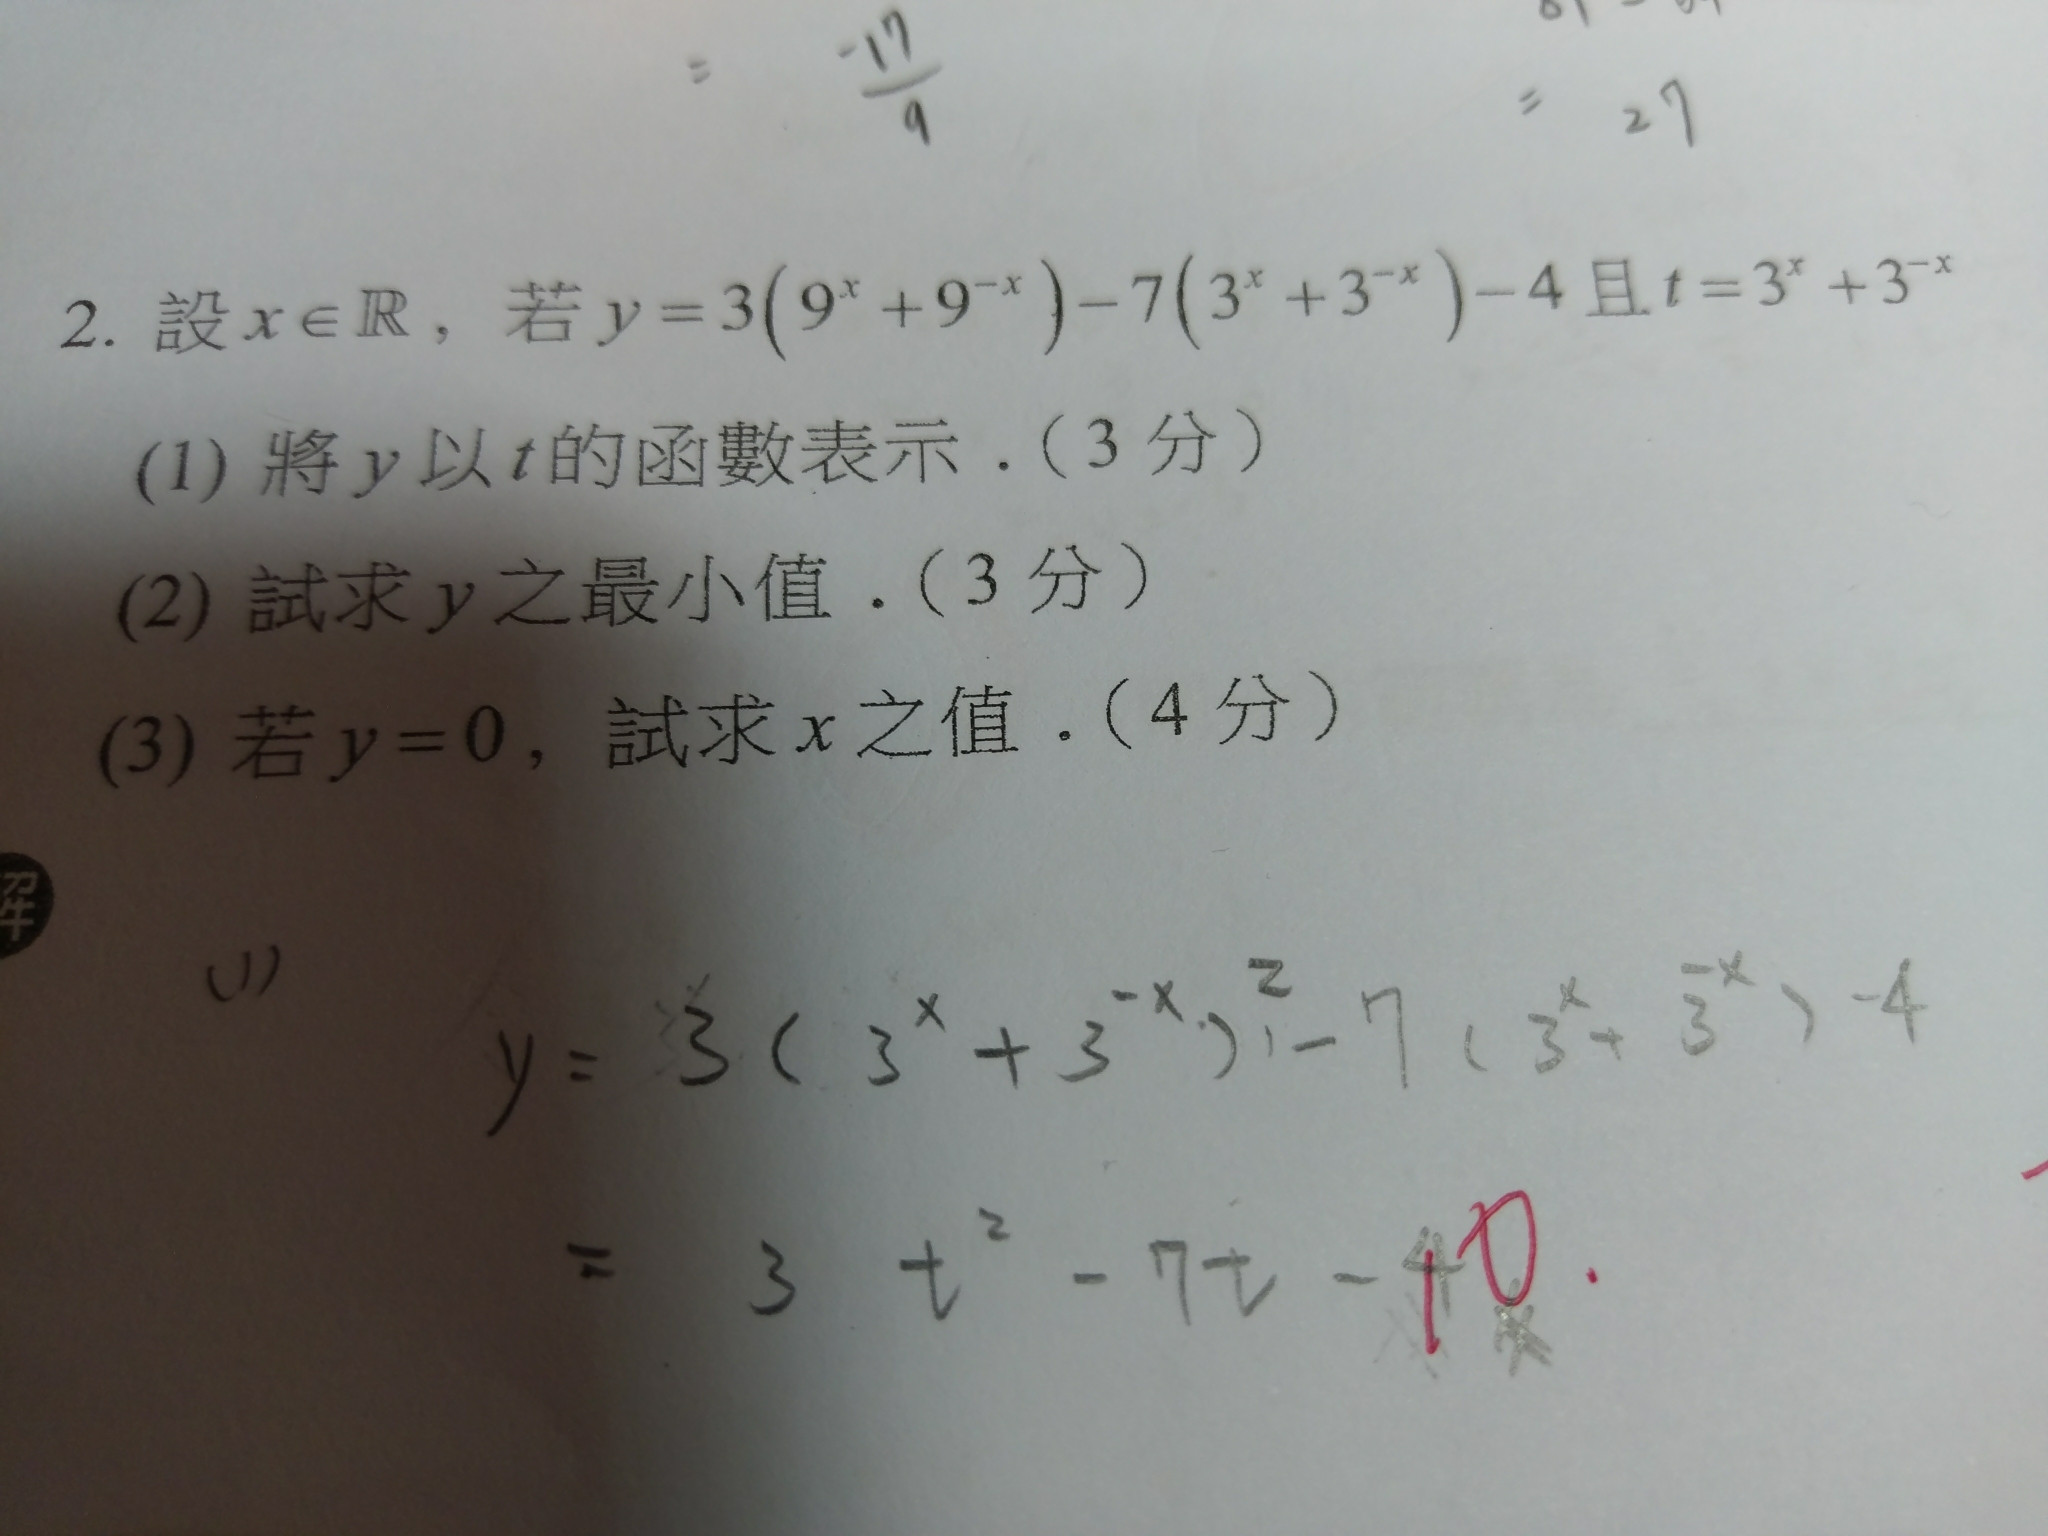 = -17/9
= 27
2. 設 x∈ℝ，若 y=3(9^x+9^{-x})-7(3^x+3^{-x})-4 且 t=3^x+3^{-x}
(1) 將 y 以 t 的函數表示．（3 分）
(2) 試求 y 之最小值．（3 分）
(3) 若 y=0，試求 x 之值．（4 分）
解
(1)
y = 3(3^x+3^{-x})^2-7(3^x+3^{-x})-4
= 3t^2-7t-10.